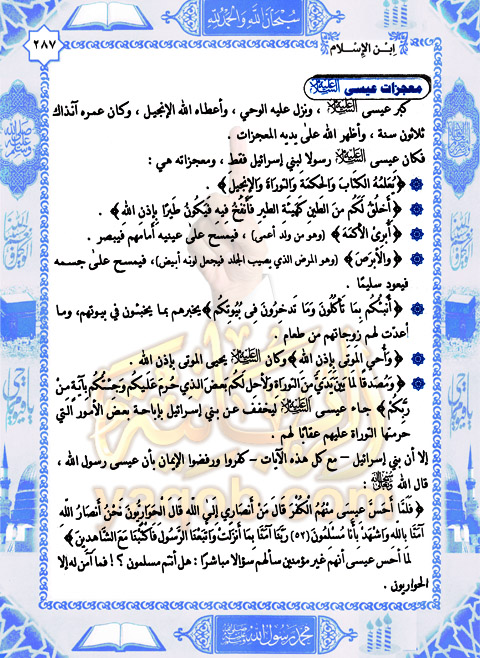 سبحان الله والحمد لله
ابن الإسلام
٢٨٧
معجزات عيسى عليه السلام
كبر عيسى عليه السلام ، ونزل عليه الوحي ، وأعطاه الله الإنجيل ، وكان عمره آنذاك
ثلاثون سنة ، وأظهر الله على يديه المعجزات .
فكان عيسى عليه السلام رسولا لبني إسرائيل فقط ، ومعجزاته هي :
﴿ يُعَلِّمُهُ الْكِتَابَ وَالْحِكْمَةَ وَالتَّوْرَاةَ وَالْإِنجِيلَ ﴾ .
﴿ أَخْلُقُ لَكُم مِّنَ الطِّينِ كَهَيْئَةِ الطَّيْرِ فَأَنفُخُ فِيهِ فَيَكُونُ طَيْرًا بِإِذْنِ اللَّهِ ﴾ .
﴿ أُبْرِئُ الْأَكْمَهَ ﴾ (وهو من ولد أعمى) ، فيمسح على عينيه أمامهم فيبصر .
﴿ وَالْأَبْرَصَ ﴾ (وهو المرض الذي يصيب الجلد فيجعل لونه أبيض)، فيمسح على جسمه
فيعود سليمًا .
﴿ أُنَبِّئُكُم بِمَا تَأْكُلُونَ وَمَا تَدَّخِرُونَ فِي بُيُوتِكُمْ ﴾ يخبرهم بما يخبئون في بيوتهم، وما
أعدّت لهم زوجاتهم من طعام .
﴿ وَأُحْيِي الْمَوْتَى بِإِذْنِ اللَّهِ ﴾ وكان عليه السلام يحيى الموتى بإذن الله .
﴿ وَمُصَدِّقًا لِّمَا بَيْنَ يَدَيَّ مِنَ التَّوْرَاةِ وَلِأُحِلَّ لَكُم بَعْضَ الَّذِي حُرِّمَ عَلَيْكُمْ وَجِئْتُكُم بِآيَةٍ مِّن
رَّبِّكُمْ ﴾ جاء عيسى عليه السلام ليخفف عن بني إسرائيل بإباحة بعض الأمور التي
حرمتها التوراة عليهم عقابًا لهم .
إلا أن بني إسرائيل – مع كل هذه الآيات – كفروا ورفضوا الإيمان بأن عيسى رسول الله ،
قال الله :
﴿ فَلَمَّا أَحَسَّ عِيسَى مِنْهُمُ الْكُفْرَ قَالَ مَنْ أَنصَارِي إِلَى اللَّهِ قَالَ الْحَوَارِيُّونَ نَحْنُ أَنصَارُ اللَّهِ
آمَنَّا بِاللَّهِ وَاشْهَدْ بِأَنَّا مُسْلِمُونَ (٥٢) رَبَّنَا آمَنَّا بِمَا أَنزَلْتَ وَاتَّبَعْنَا الرَّسُولَ فَاكْتُبْنَا مَعَ الشَّاهِدِينَ ﴾
لمّا أحس عيسى أنهم غير مؤمنين سألهم سؤالا مباشرًا : هل أنتم مسلمون ؟! فما آمن له إلا
الحواريون .
yaqob.com
محمد رسول الله